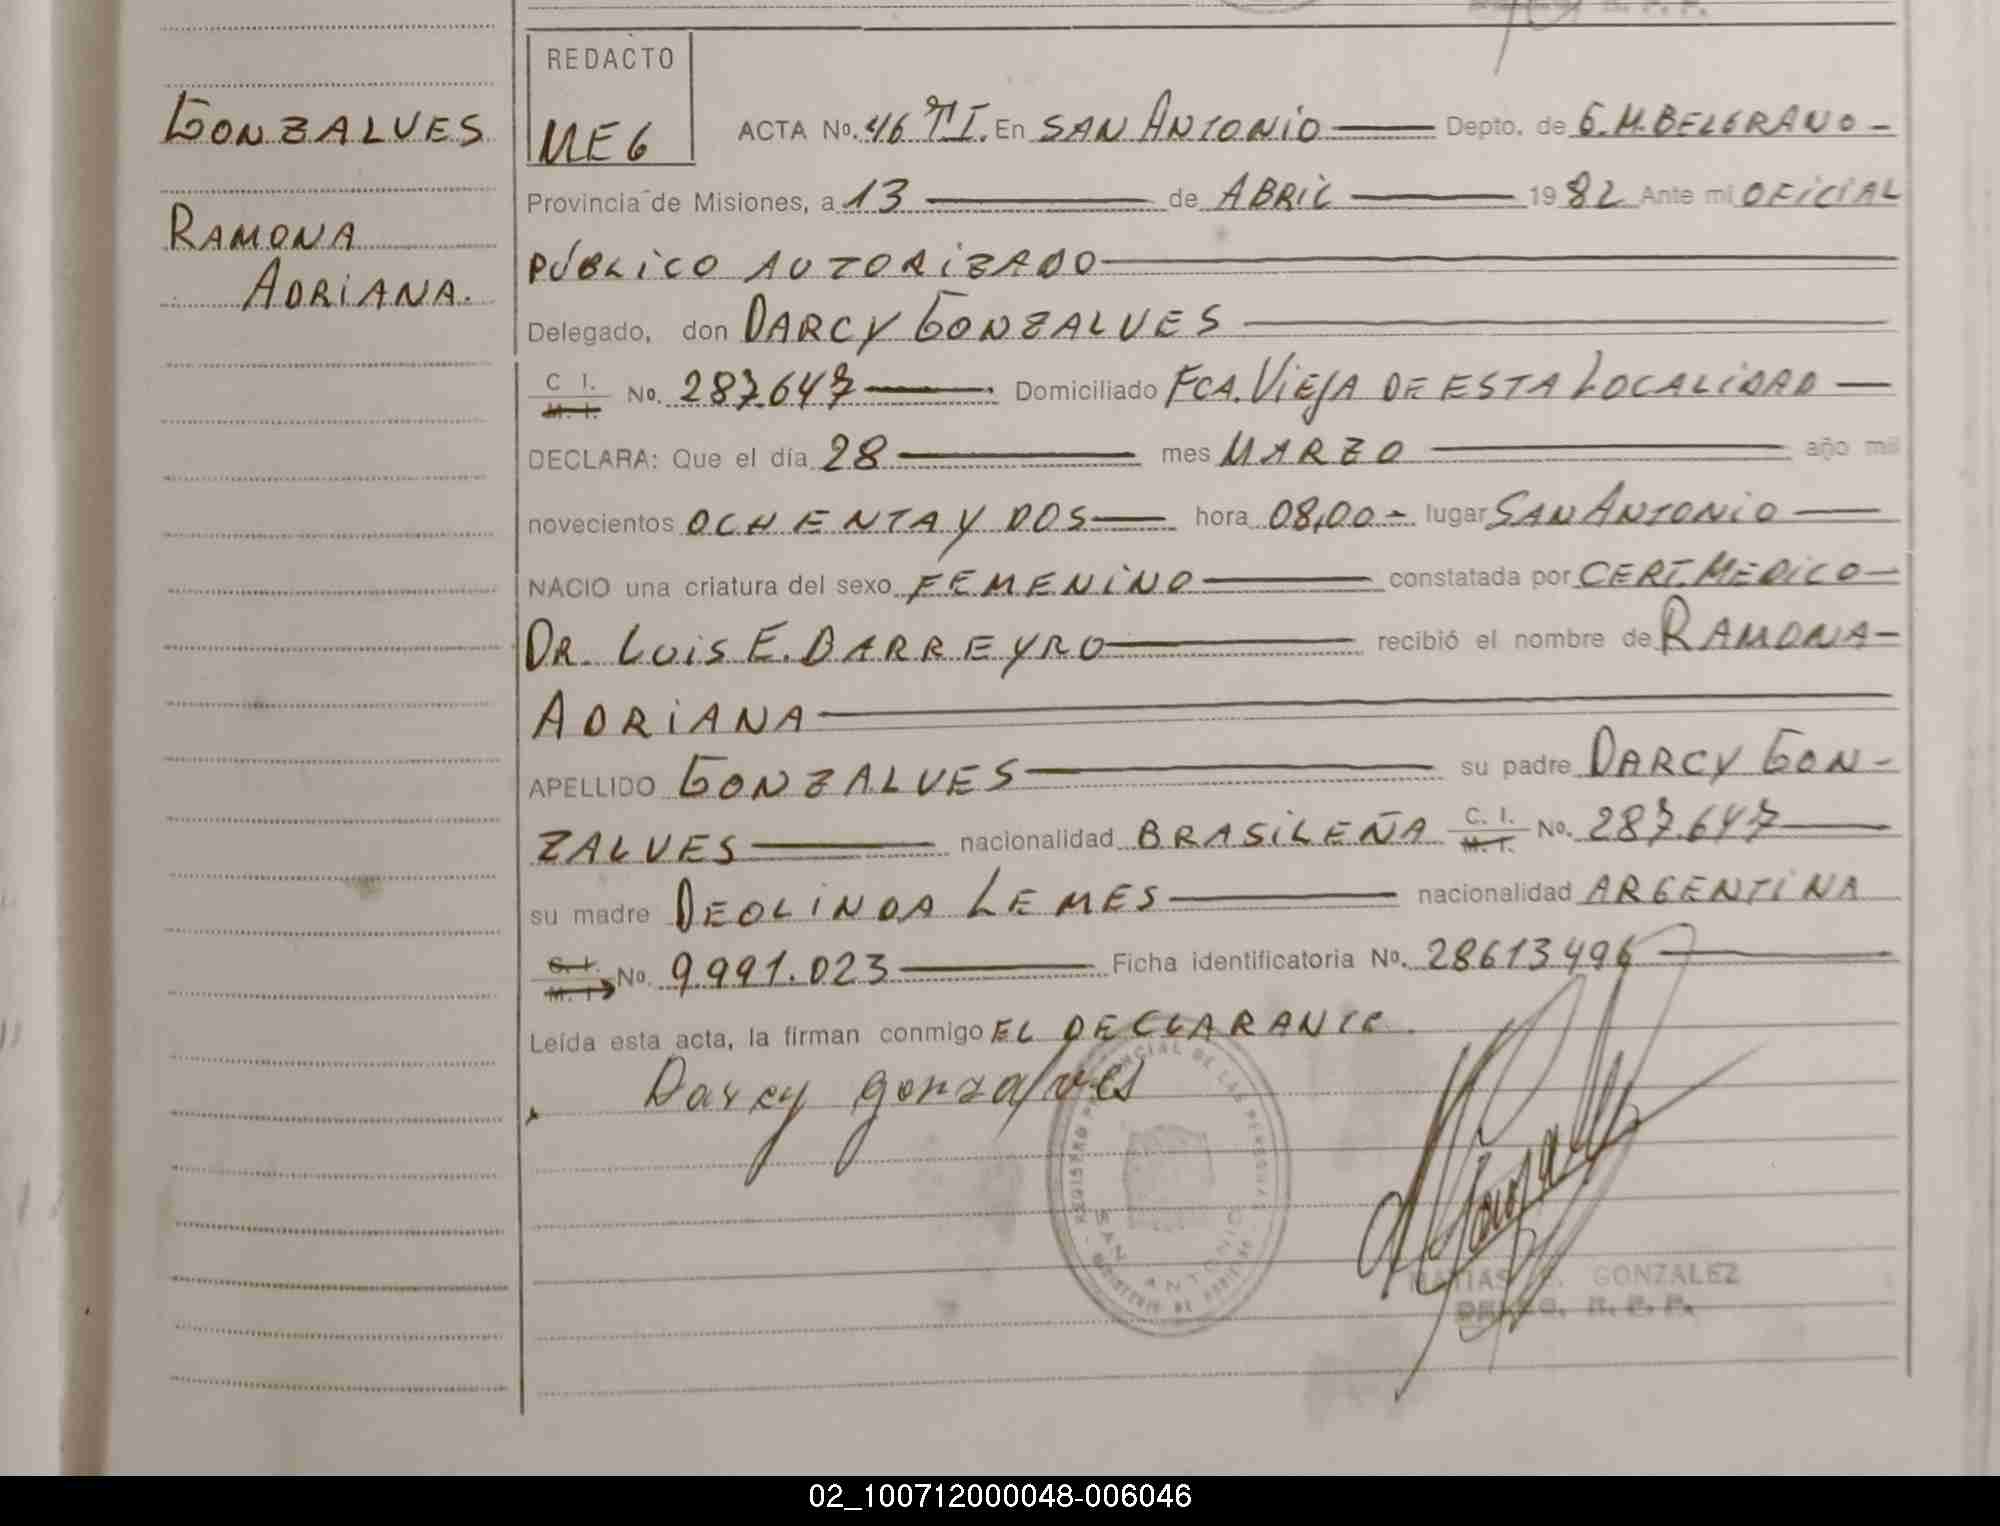 GONZALVES
RAMONA
ADRIANA.
REDACTO
MEG
ACTA No. 46 TI. En SAN ANTONIO Depto. de G.M.BELGRANO -
Provincia de Misiones, a 13 de ABRIL 1982 Ante mi OFICIAL
PÚBLICO AUTORIZADO
Delegado, don DARCY GONZALVES
C. I. M. I. No. 287.647 Domiciliado FCA. VIEJA DE ESTA LOCALIDAD
DECLARA: Que el día 28 mes MARZO año mil
novecientos OCHENTA Y DOS hora 08,00 - lugar SAN ANTONIO
NACIO una criatura del sexo FEMENINO constatada por CERT. MEDICO
DR. LUIS E. BARREYRO recibió el nombre de RAMONA
ADRIANA
APELLIDO GONZALVES su padre DARCY GON-
ZALVES nacionalidad BRASILEÑA C. I. M. I. No. 287.647
su madre DEOLINDA LEMES nacionalidad ARGENTINA
C. I. M. I. No. 9.991.023 Ficha identificatoria No. 28613496
Leída esta acta, la firman conmigo EL DECLARANTE.
Darcy gonzalves
REGISTRO PROVINCIAL DE LAS PERSONAS
SAN ANTONIO
MINISTERIO DE GOBIERNO
MATIAS GONZALEZ
DELEG. R. P. P.
02_100712000048-006046